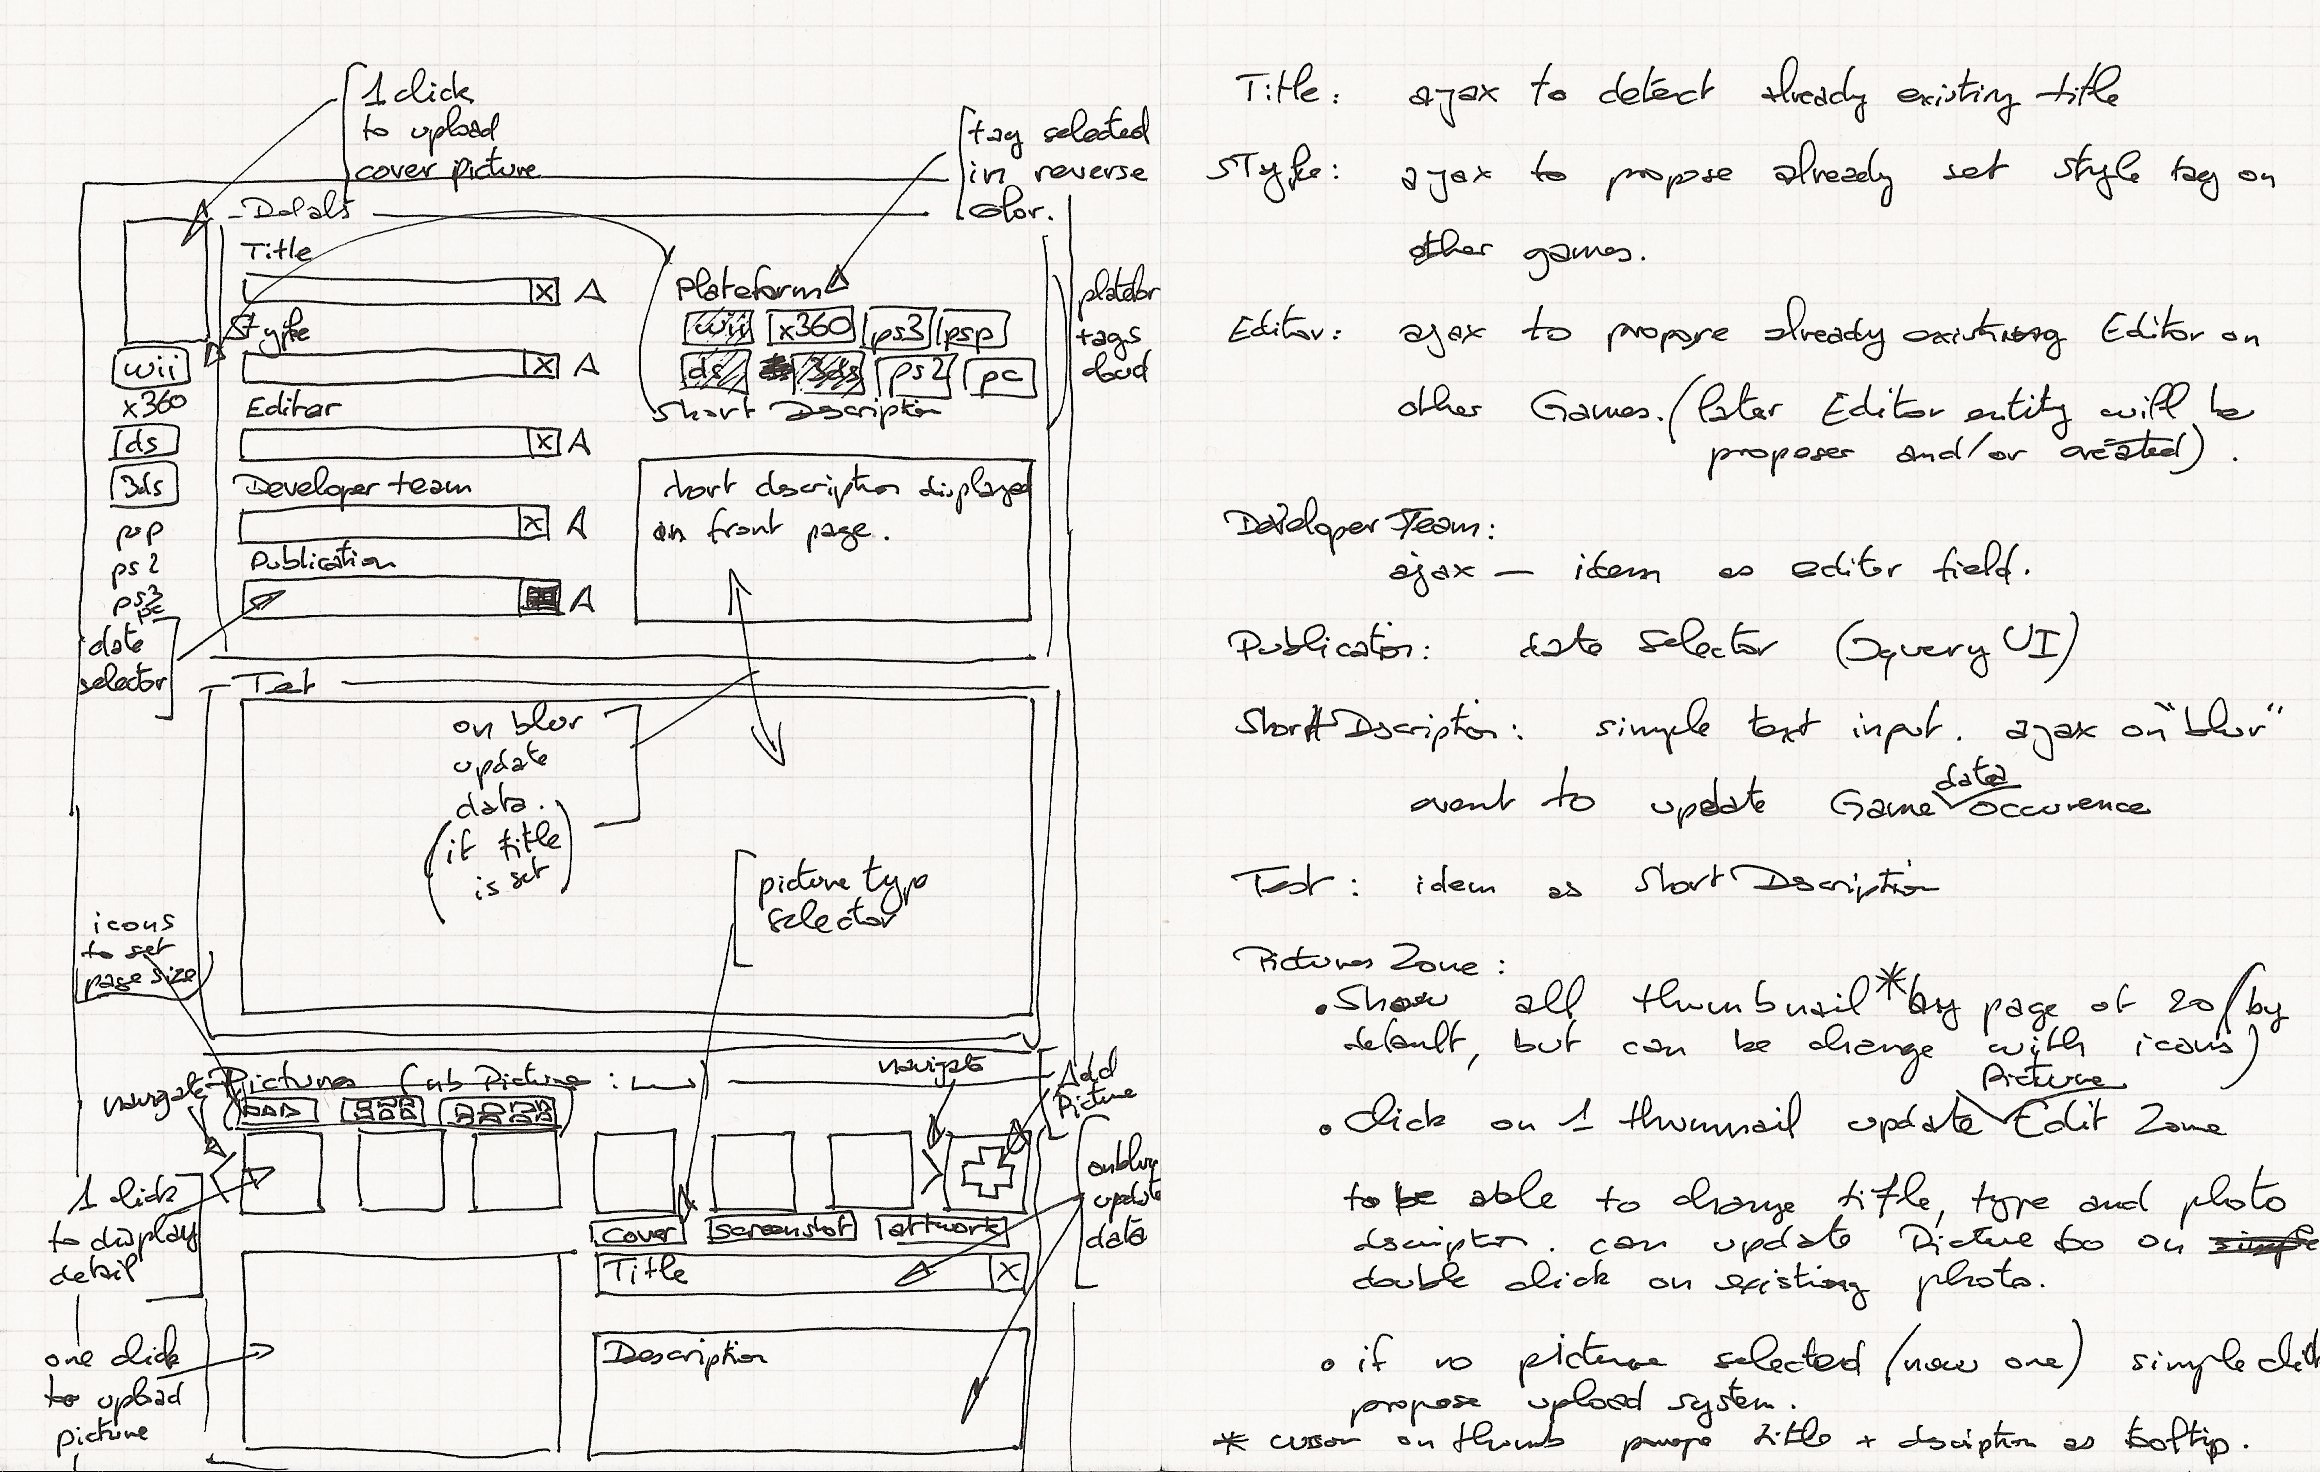 1 click
to upload
cover picture
tag selected
in reverse
color.
Details
Title
X A
Style
X A
Editor
X A
Developer team
X A
Publication
A
Plateform
wii x360 ps3 psp
ds 3ds ps2 pc
Short Description
short description displayed
on front page.
platefor
tags
cloud
wii
x360
ds
3ds
psp
ps2
ps3
pc
date
selector
Test
on blur
update
data.
(if title
is set)
picture type
selector
icons
to set
page size
navigate
Pictures (nb Picture : )
navigate
Add
Picture
1 click
to display
detail
cover screenshot artwork
Title X
Description
onblur
update
data
one click
to upload
picture
Title: ajax to detect already existing title
Style: ajax to propose already set style tag on
other games.
Editor: ajax to propose already existing Editor on
other Games. (later Editor entity will be
proposer and/or created).
Developer Team:
ajax — idem as editor field.
Publication: date selector (Jquery UI)
Short Dscription: simple text input. ajax on "blur"
event to update Game data occurence
Test: idem as Short Dscription
Pictures Zone:
• Show all thumbnail * by page of 20 (by
default, but can be change with icons)
• Click on 1 thumnail update Picture Edit Zone
to be able to change title, type and photo
dscription. can update Picture too on simple
double click on existing photo.
• if no picture selected (new one) simple click
propose upload system.
* cursor on thumb title + dsciption as tooltip.